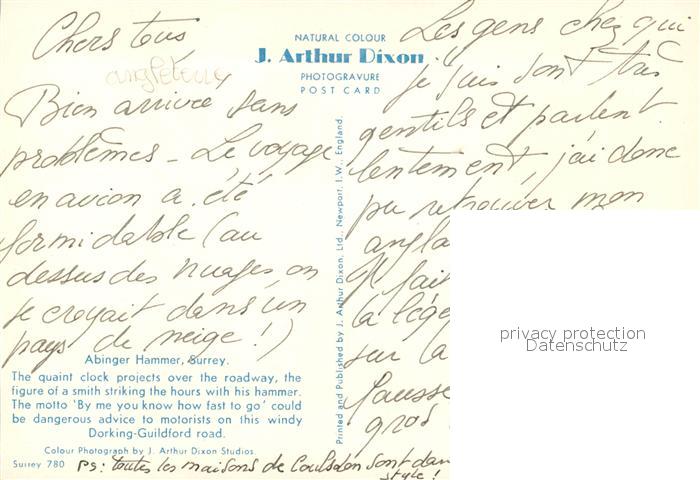 Chers tous
angleterre
Bien arrivée sans
problèmes - Le voyage
en avion a été
formidable (au
dessus des nuages, on
se croyait dans un
pays de neige !)
NATURAL COLOUR
J. Arthur Dixon
PHOTOGRAVURE
POST CARD
Les gens chez qui
je suis sont très
gentils et parlent
lentement, j'ai donc
pu retrouver mon
angla
Il fait
la lége
sur la
fausse
gros
Printed and Published by J. Arthur Dixon, Ltd., Newport, I.W., England.
privacy protection
Datenschutz
Abinger Hammer, Surrey.
The quaint clock projects over the roadway, the
figure of a smith striking the hours with his hammer.
The motto 'By me you know how fast to go' could
be dangerous advice to motorists on this windy
Dorking-Guildford road.
Colour Photograph by J. Arthur Dixon Studios.
Surrey 780
PS: toutes les maisons de Coulsdon sont dan
style !